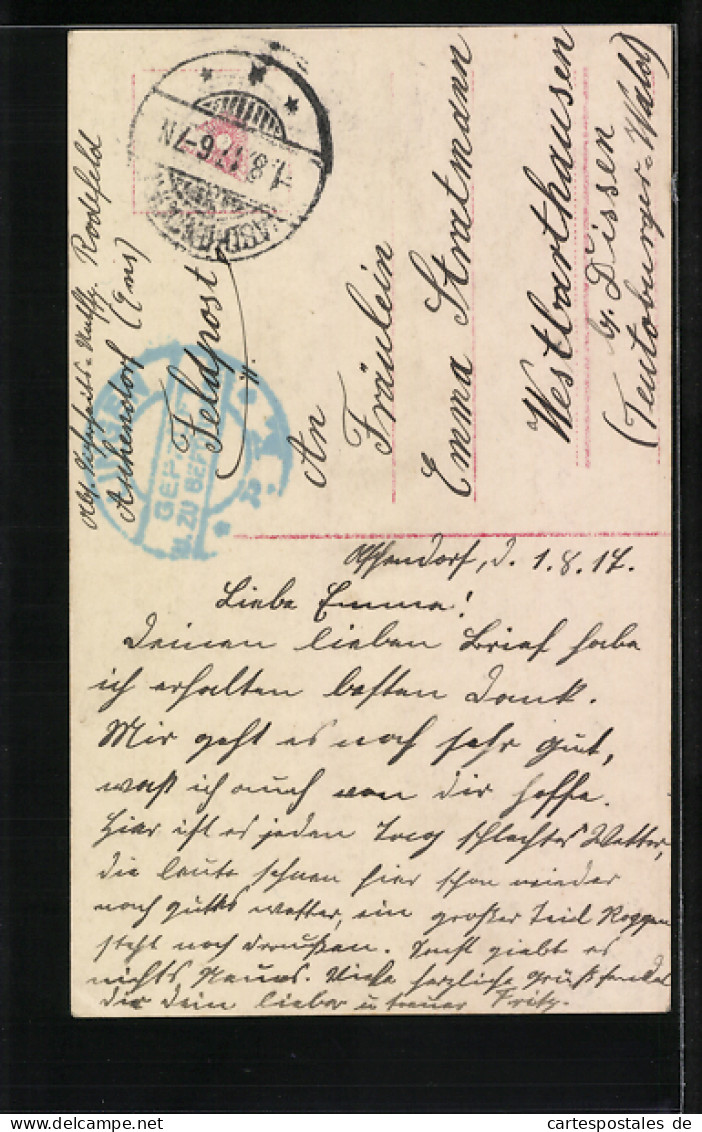 Feldpost
An
Fräulein
Emma Stratmann
Westbarthausen
b. Dissen
(Teutoburger-Wald)
Rodefeld
Aschendorf (Ems)
ASCHENDORF
1.8.17.6-7N
GEPRÜFT
u. ZU BEF
Aschendorf, d. 1.8.17.
Liebe Emma!
Deinen lieben Brief habe
ich erhalten besten Dank.
Mir geht es noch sehr gut,
waß ich auch von dir hoffe.
Hier ist es jeden Tag schlechtes Wetter,
die leute sehnen hier schon wieder
nach gutes wetter, ein großer teil Roggen
steht noch draußen. Sonst giebt es
nichts Neues. Viele herzliche grüße sendet
dir dein lieber u treuer Fritz.
cartespostales de